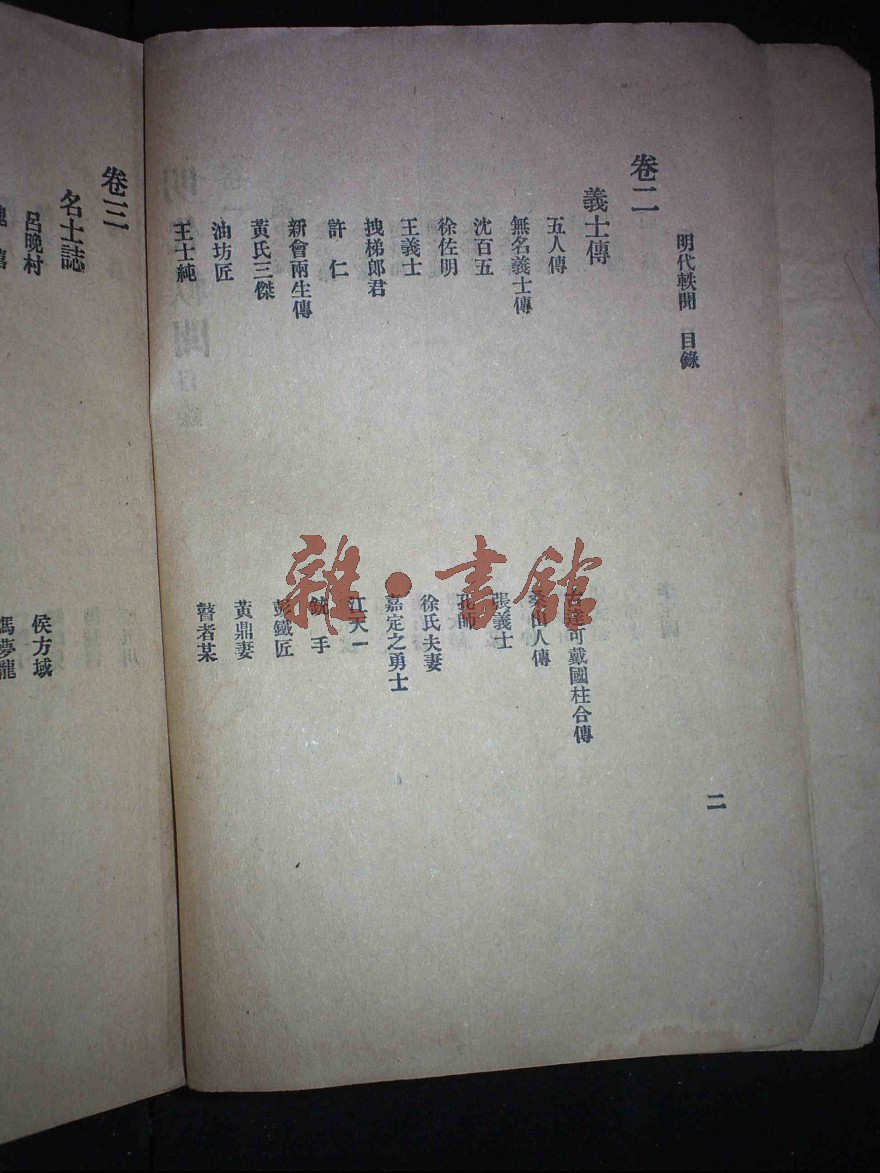 明代軼聞 目錄
二
卷二
義士傳
五人傳
可戴國柱合傳
無名義士傳
山人傳
沈百五
張義士
徐佐明
孔師
王義士
徐氏夫妻
拽梯郎君
嘉定之勇士
許仁
江天一
新會兩生傳
銃手
黃氏三傑
彭鐵匠
油坊匠
黃鼎妻
王士純
瞽者某
卷三
名士誌
呂晚村
侯方域
馮夢龍
雜·書館